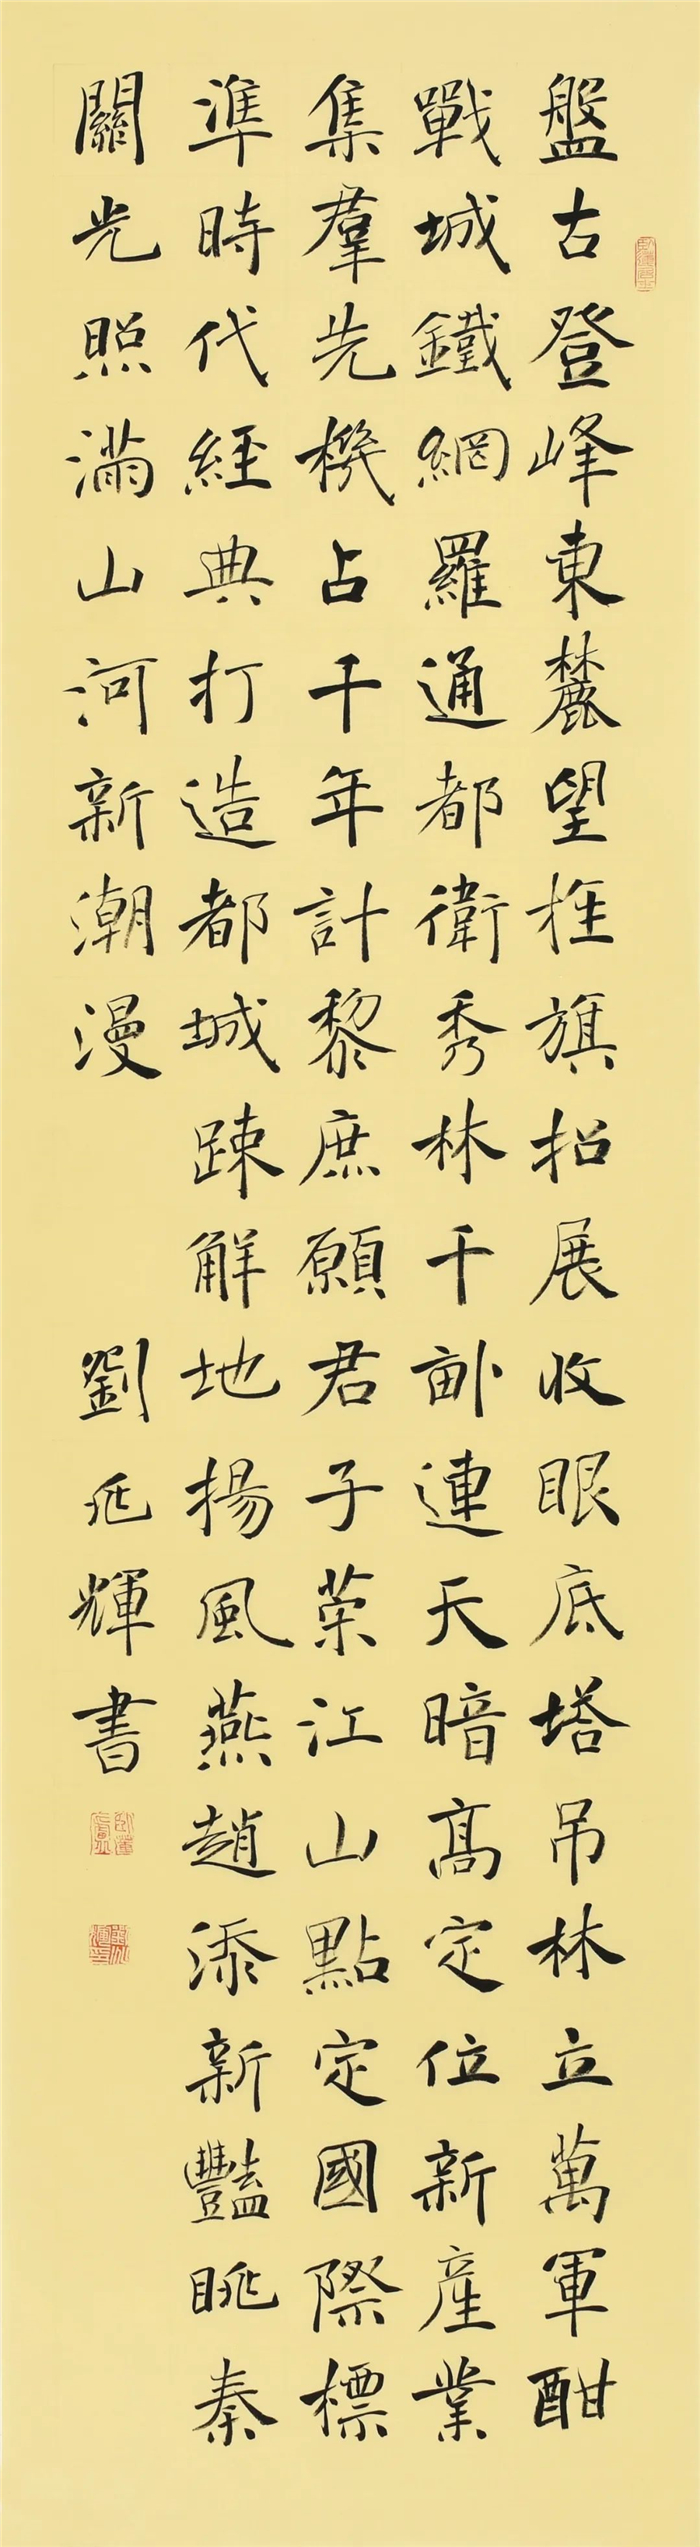 盤古登峰東麓望旌旗招展收眼底塔吊林立萬軍酣
戰城鐵網羅通都衛秀林千畝連天暗高定位新產業
集羣先機占千年計黎庶願君子榮江山點定國際標
準時代經典打造都城疎解地揚風燕趙添新豔眺秦
關光照滿山河新潮漫
劉兆輝書